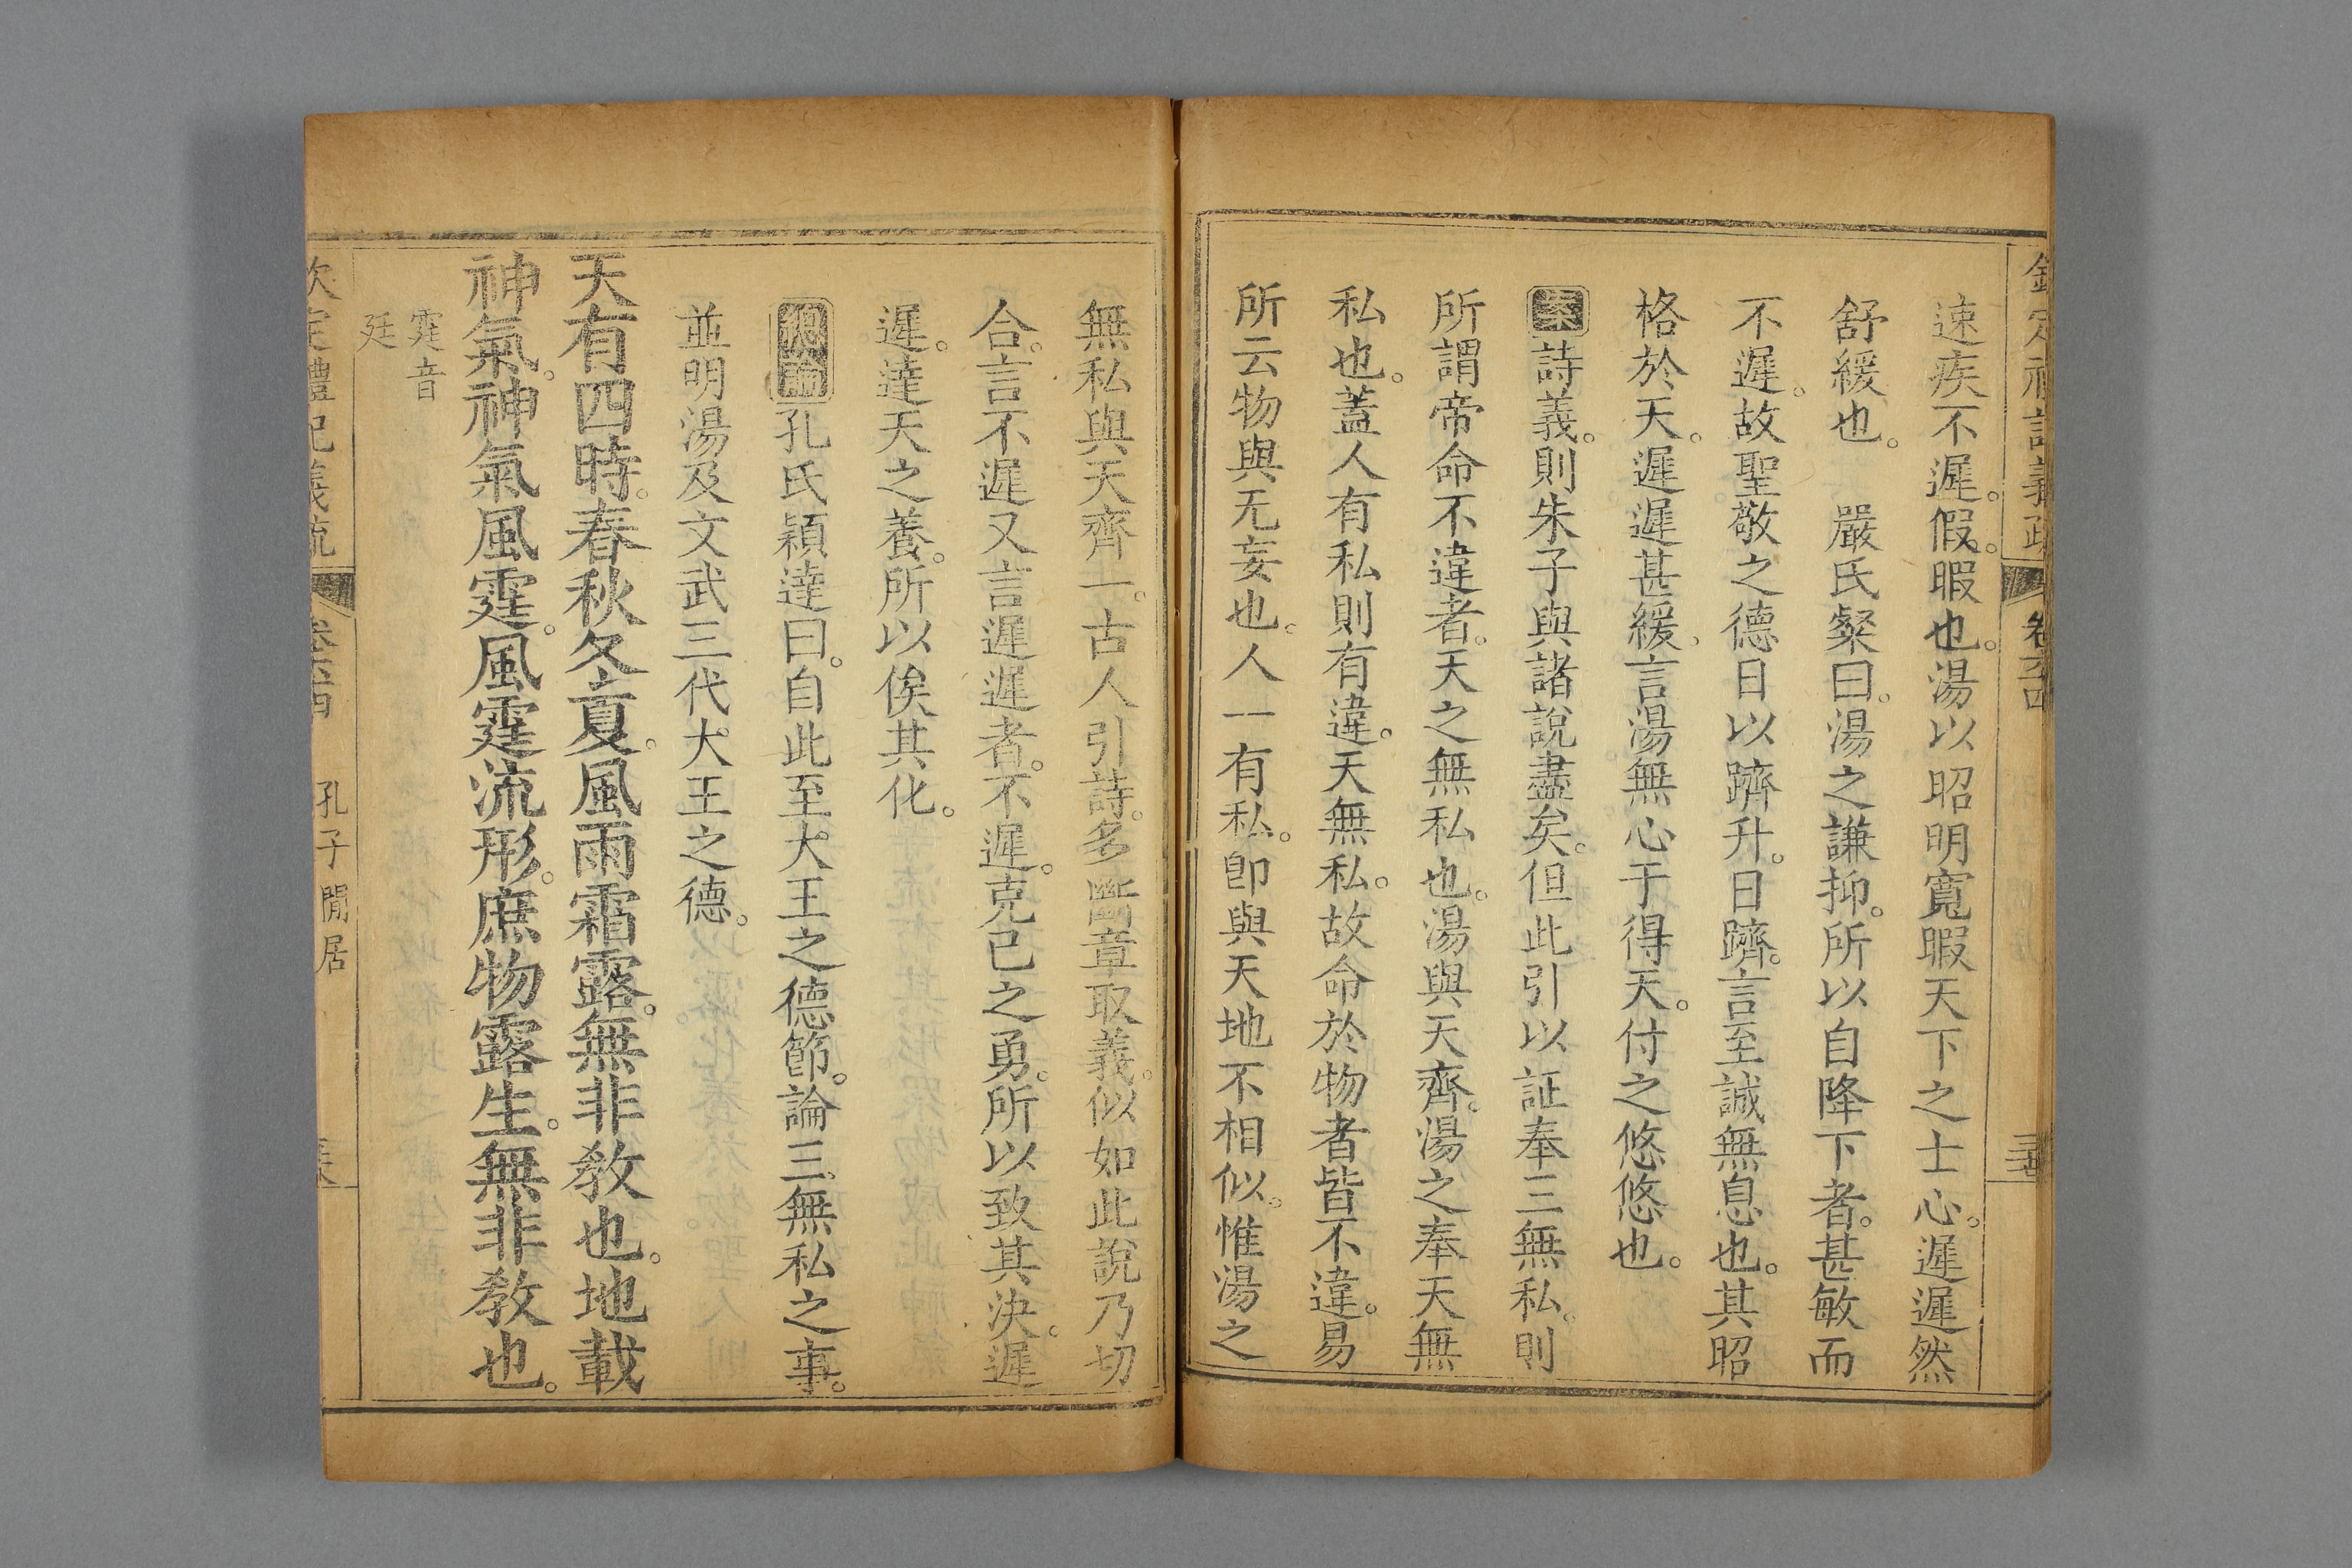 欽定禮記義疏 卷六十四
速疾不遲。假。暇也。湯以昭明寬暇天下之士心。遲遲然
舒緩也。 嚴氏粲曰。湯之謙抑。所以自降下者。甚敏而
不遲。故聖敬之德日以躋升。日躋。言至誠無息也。其昭
格於天。遲遲甚緩。言湯無心于得天。付之悠悠也。
案詩義。則朱子與諸說盡矣。但此引以証奉三無私。則
所謂帝命不違者。天之無私也。湯與天齊。湯之奉天無
私也。蓋人有私則有違。天無私。故命於物者皆不違。易
所云物與无妄也。人一有私。卽與天地不相似。惟湯之
無私與天齊一。古人引詩。多斷章取義。似如此說乃切
合。言不遲又言遲遲者。不遲。克己之勇。所以致其決。遲
遲。達天之養。所以俟其化。
總論孔氏穎達曰。自此至大王之德節。論三無私之事。
並明湯及文武三代大王之德。
天有四時。春秋冬夏。風雨霜露。無非教也。地載
神氣。神氣風霆。風霆流形。庶物露生。無非教也。
霆音
廷
欽定禮記義疏 卷六十四 孔子閒居